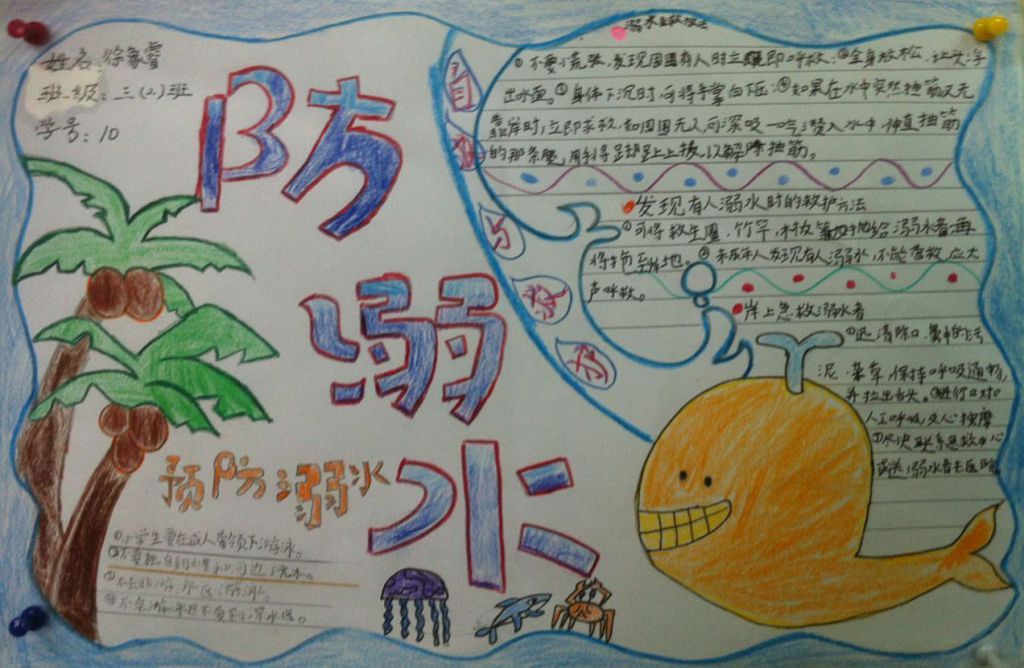 姓名:徐家睿
班级:三(2)班
学号:10
防
溺
水
预防溺水
①小学生要在成人带领下游泳。
②不要独自到河边
④不会游泳
溺水自救
①不要慌张,发现周围有人时立即呼救;②全身放松,让头浮
出水面。③身体下沉时,可将手掌向下压;④如果在水中突然抽筋又无
靠岸时,立即求救,如周围无人,可深吸一口气潜入水中,伸直抽筋
的那条腿,用手将脚趾向上扳,以解除抽筋。
发现有人溺水时的救护方法
①可将救生圈、竹竿、木板等抛给溺水者,再
将拖至地。②未成年人发现有人溺水,不能营救,应大
声呼救。
岸上急救溺水者
①迅清除口、鼻中的污
泥、杂草,保持呼吸通畅,
并拉出舌头。②进行口对
人工呼吸及心按摩
③尽快联系急救中心
或送溺水者去医院